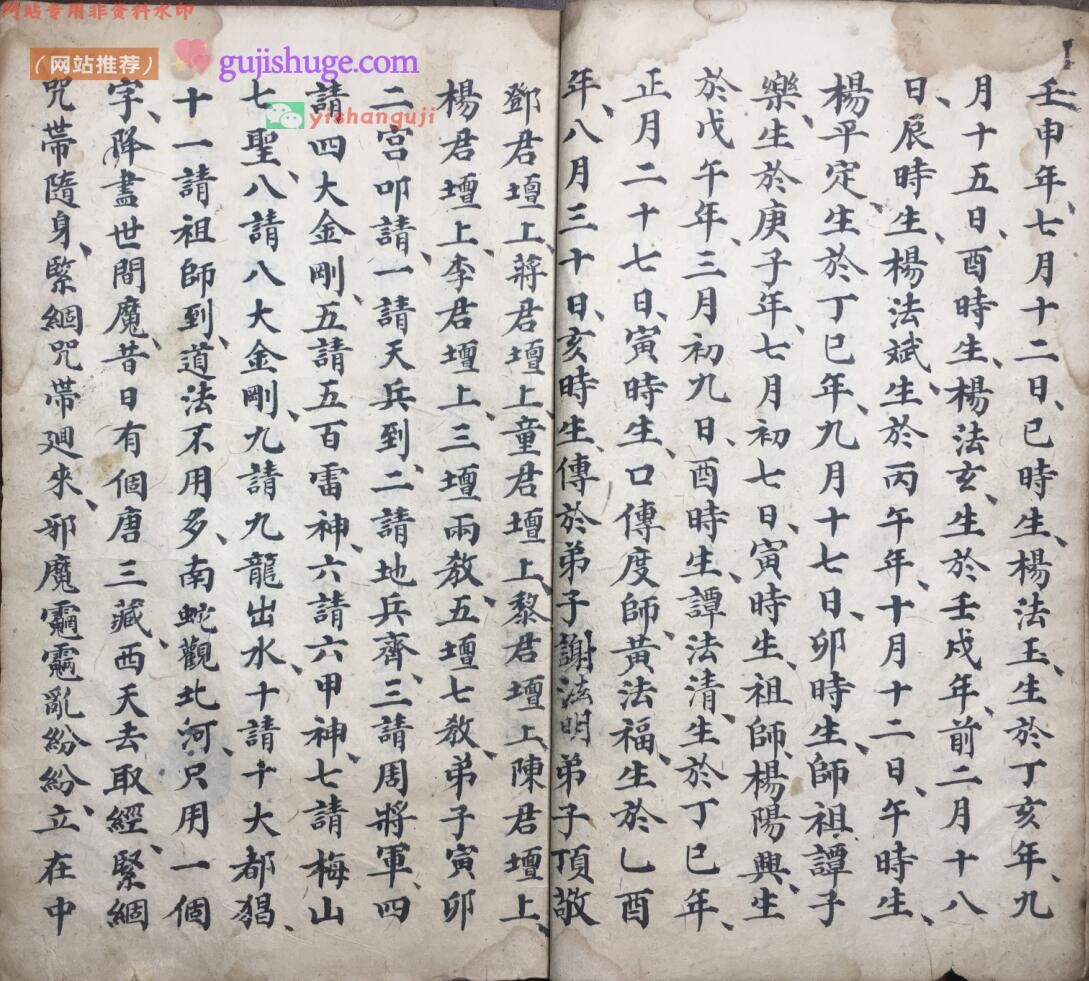 网站专用非资料水印
（网站推荐）
gujishuge.com
yishanguji
壬申年、七月十二日、巳時生、楊法玉、生於丁亥年、九
月十五日、酉時生、楊法玄、生於壬戍年、前二月十八
日、辰時生、楊法斌、生於丙午年、十月十二日、午時生、
楊平定、生於丁巳年、九月十七日、卯時生、師祖譚子
樂、生於庚子年、七月初七日、寅時生、祖師楊陽興、生
於戊午年、三月初九日、酉時生、譚法清、生於丁巳年、
正月二十七日、寅時生、口傳度師、黃法福、生於乙酉
年、八月三十日、亥時生、傳於弟子謝法明弟子頂敬
鄧君壇上、蔣君壇上、童君壇上、黎君壇上、陳君壇上、
楊君壇上、李君壇上、三壇兩教、五壇七教、弟子寅卯
二宮叩請、一請天兵到、二請地兵齊、三請周將軍、四
請四大金剛、五請五百雷神、六請六甲神、七請梅山
七聖、八請八大金剛、九請九龍出水、十請十大都猖、
十一請祖師到、道法不用多、南蛇觀北河、只用一個
字、降盡世間魔、昔日有個唐三藏、西天去取經、緊綑
咒帶隨身、緊綑咒帶廻來、邪魔亂紛紛、立在中